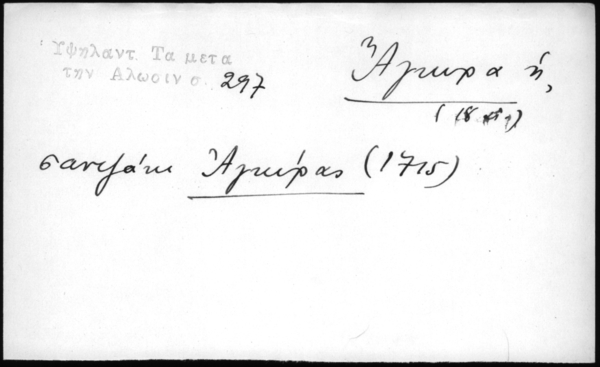 Ὑψηλαντ. Τα μετα
την Αλωσιν σ. 297
Ἄγκυρα ἡ,
(18 αἰ.)
σαντζάκι Ἀγκύρας (1715)